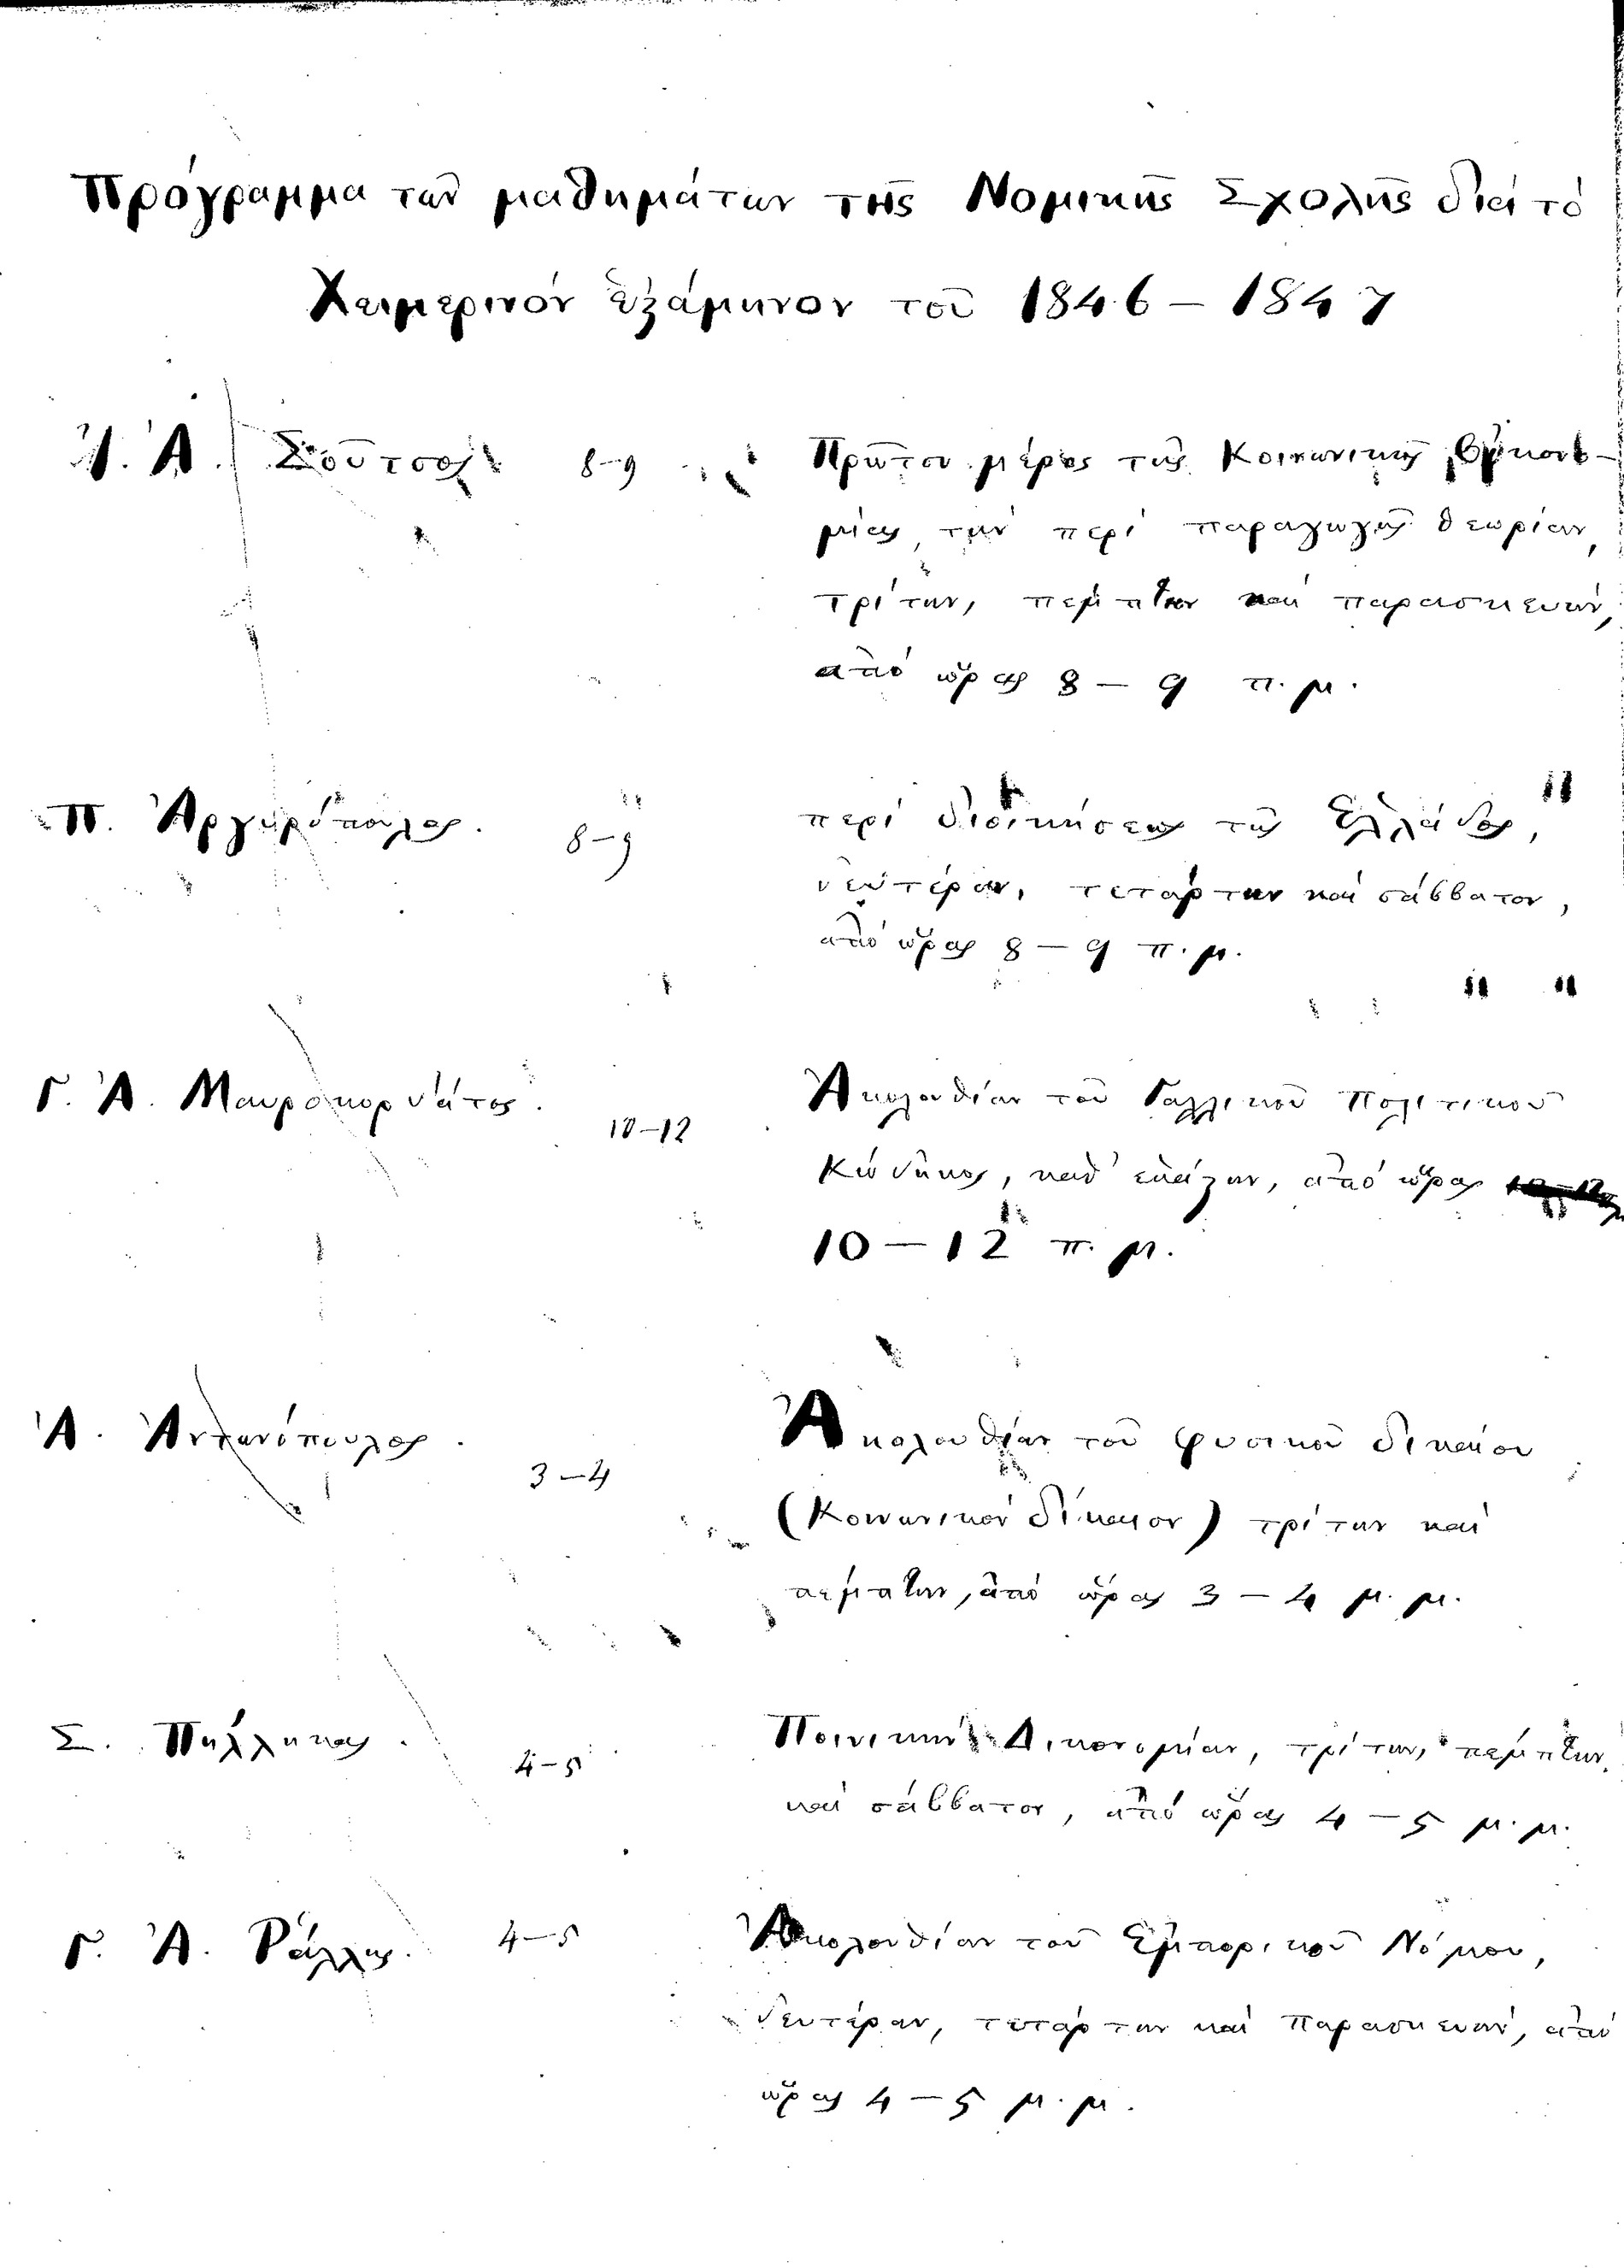 Πρόγραμμα τῶν μαθημάτων τῆς Νομικῆς Σχολῆς διὰ τὸ
Χειμερινὸν ἑξάμηνον τοῦ 1846 – 1847
Ἰ. Ἀ. Σοῦτσος 8–9 Πρῶτον μέρος τῆς Κοινωνικῆς Οἰκονο-
μίας, τὴν περὶ παραγωγῆς θεωρίαν,
τρίτην, πέμπτην καὶ παρασκευήν,
ἀπὸ ὥρας 8 – 9 π. μ.
Π. Ἀργυρόπουλος. 8–9 περὶ διοικήσεως τῆς Ἑλλάδος,
δευτέραν, τετάρτην καὶ σάββατον,
ἀπὸ ὥρας 8 – 9 π. μ.
Γ. Ἀ. Μαυροκορδάτος. 10–12 Ἀκολουθίαν τοῦ Γαλλικοῦ Πολιτικοῦ
Κώδηκος, καθ' ἑκάστην, ἀπὸ ὥρας
10 – 12 π. μ.
Ἀ. Ἀντωνόπουλος. 3–4 Ἀκολουθίαν τοῦ φυσικοῦ δικαίου
(Κοινωνικὸν δίκαιον) τρίτην καὶ
πέμπτην, ἀπὸ ὥρας 3 – 4 μ. μ.
Σ. Πήλληκας. 4–5 Ποινικὴν Δικονομίαν, τρίτην, πέμπτην,
καὶ σάββατον, ἀπὸ ὥρας 4 – 5 μ. μ.
Γ. Ἀ. Ῥάλλης. 4–5 Ἀκολουθίαν τοῦ Ἐμπορικοῦ Νόμου,
δευτέραν, τετάρτην καὶ Παρασκευήν, ἀπὸ
ὥρας 4 – 5 μ. μ.